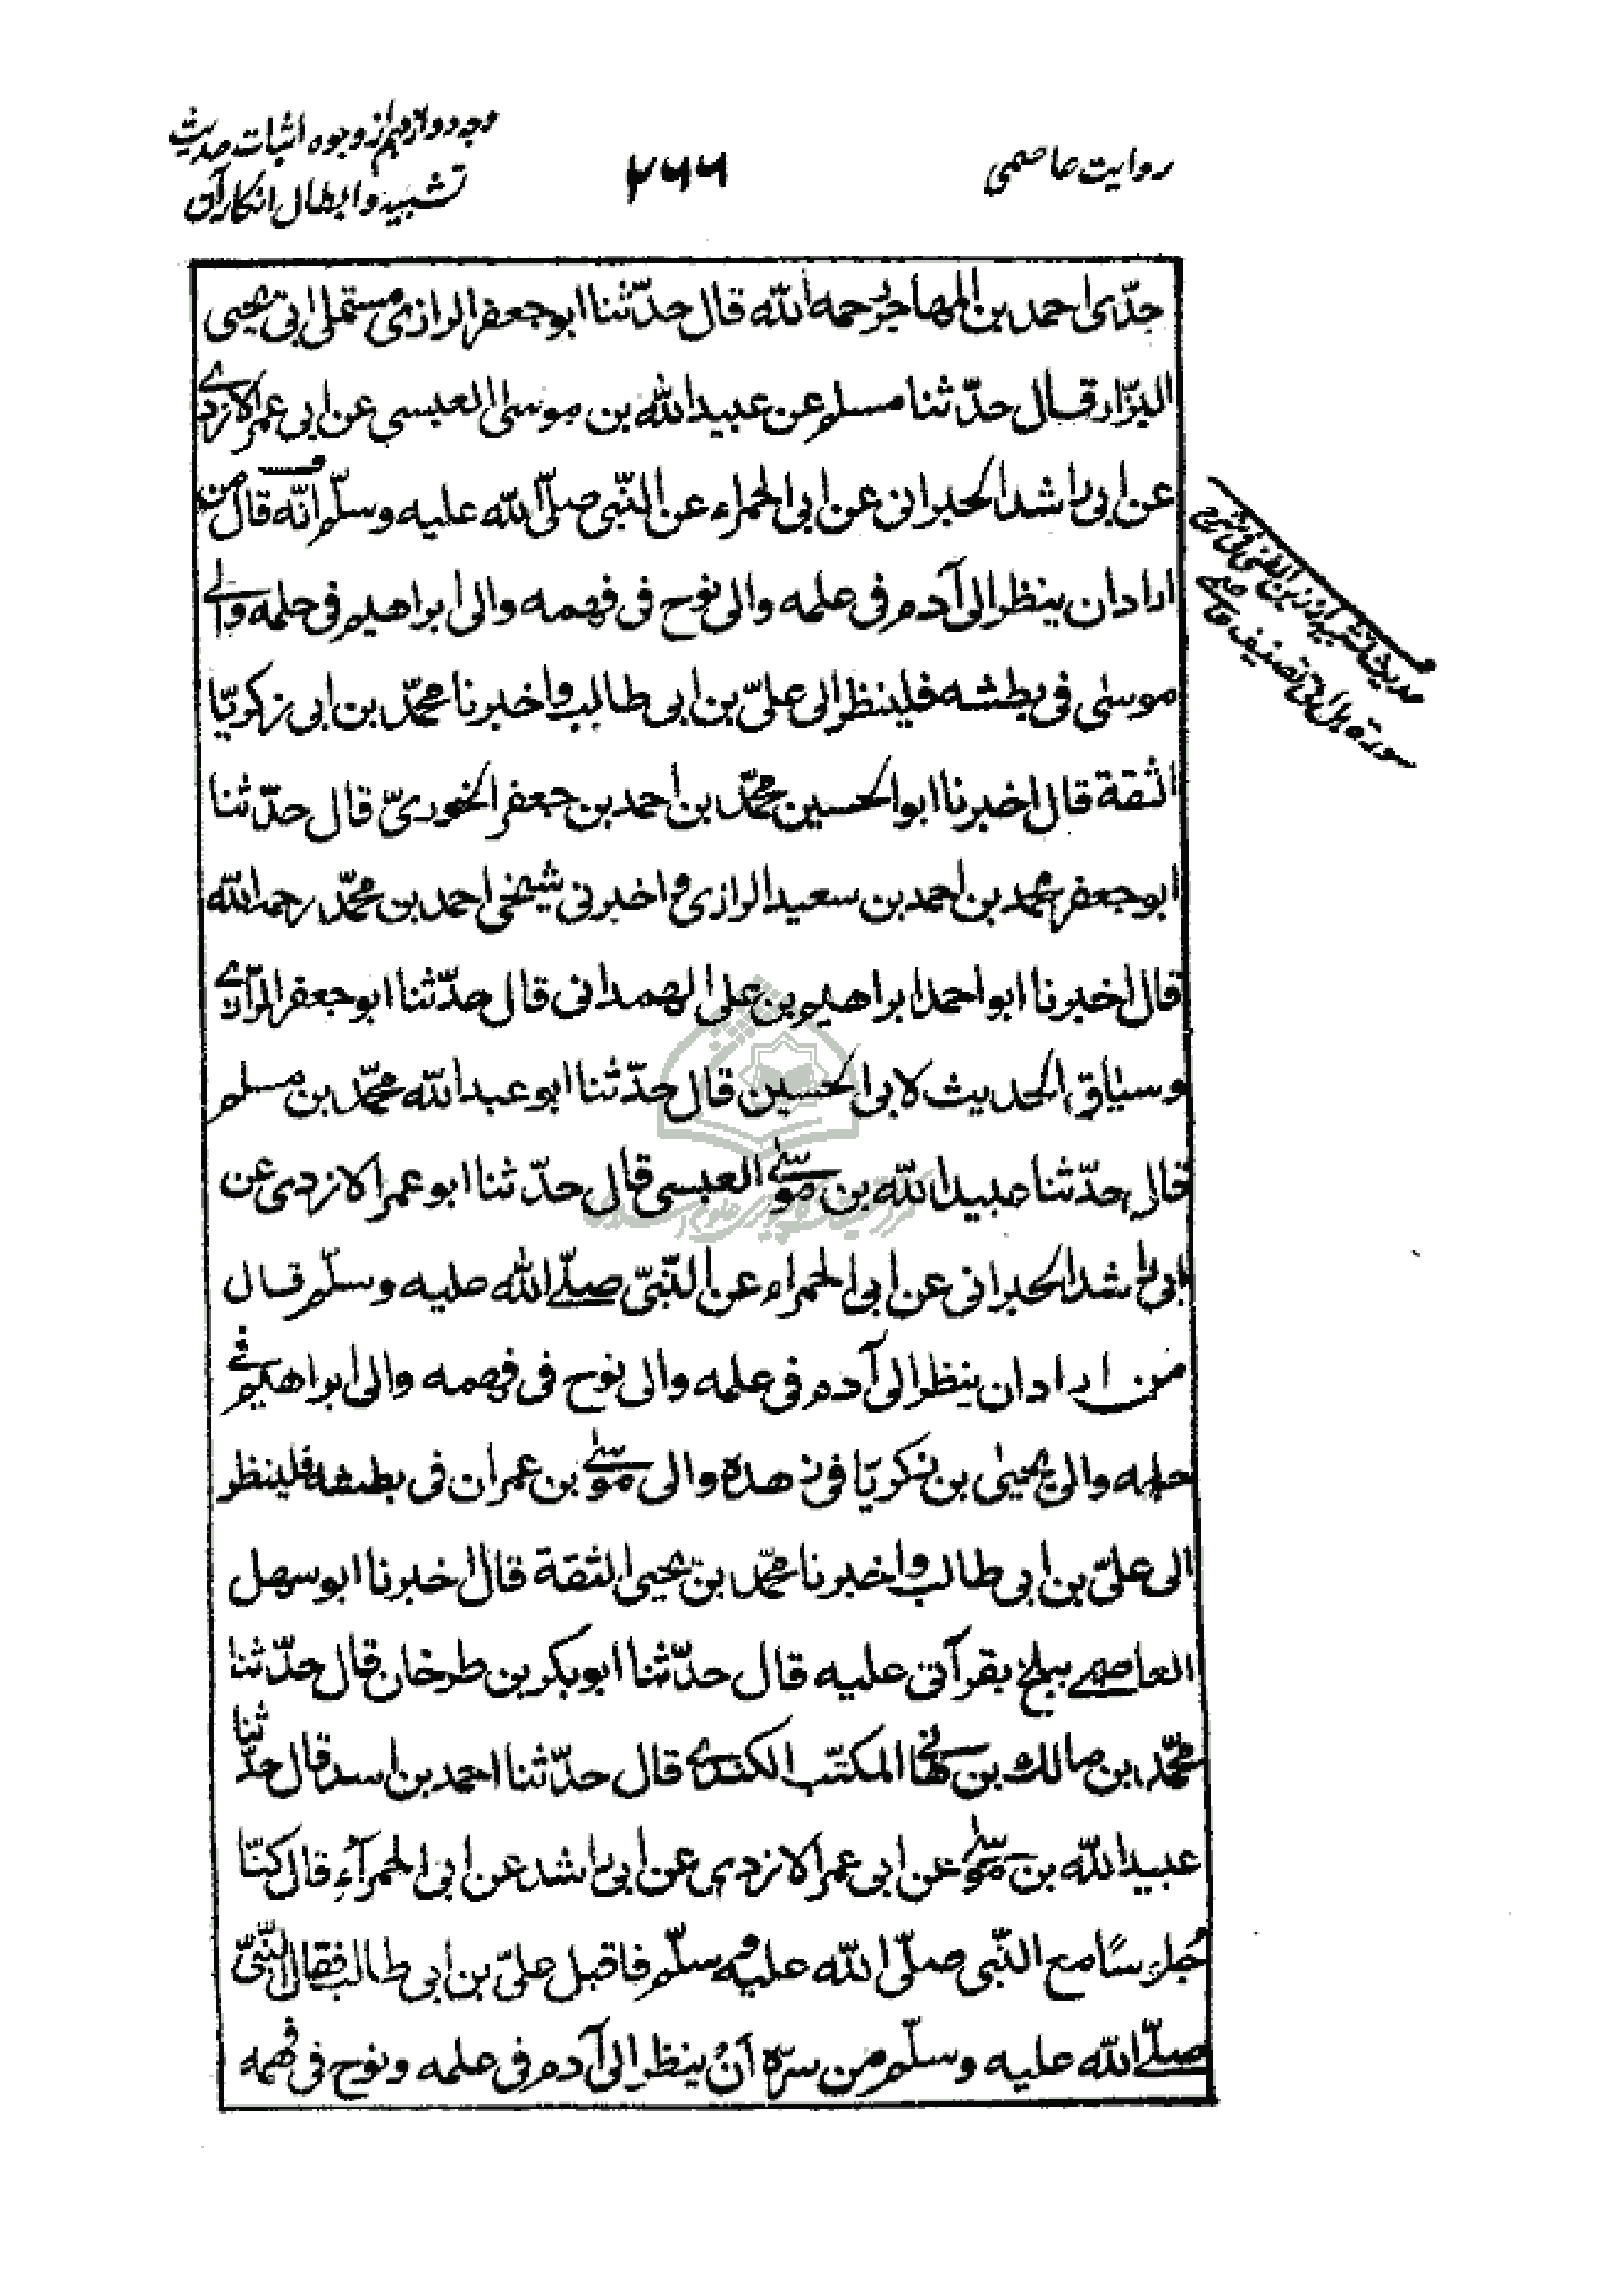 روایت عاصمی
۲۶۶
وجه دوازدهم از وجوه اثبات حدیث
تشبیه و ابطال انکار آن
جدّی احمد بن المهاجر رحمه الله قال حدّثنا ابو جعفر الرازی مستملی ابی یحیی
البزّار قال حدّثنا مسلم عن عبیدالله بن موسی العبسی عن ابی عمر الازدی
عن ابی راشد الحبرانی عن ابی الحمراء عن النّبی صلّی الله علیه وسلّم انّه قال من
اراد ان ینظر الی آدم فی علمه والی نوح فی فهمه والی ابراهیم فی حلمه والی
موسی فی بطشه فلینظر الی علیّ بن ابی طالب واخبرنا محمّد بن ابی زکریّا
الثقة قال اخبرنا ابو الحسین محمّد بن احمد بن جعفر الخوریّ قال حدّثنا
ابو جعفر محمد بن احمد بن سعید الرازی واخبرنی شیخی احمد بن محمّد رحمه الله
قال اخبرنا ابو احمد ابراهیم بن علی الهمدانی قال حدّثنا ابو جعفر الرّازی
وسیاق الحدیث لابی الحسین قال حدّثنا ابو عبدالله محمّد بن مسلم
قال حدّثنا عبیدالله بن موسی العبسی قال حدّثنا ابو عمر الازدی عن
ابی راشد الحبرانی عن ابی الحمراء عن النّبیّ صلّی الله علیه وسلّم قال
من اراد ان ینظر الی آدم فی علمه والی نوح فی فهمه والی ابراهیم فی
حلمه والی یحیی بن زکریّا فی زهده والی موسی بن عمران فی بطشه فلینظر
الی علیّ بن ابی طالب واخبرنا محمّد بن یحیی الثقة قال اخبرنا ابو سهل
العاصمی ببلخ بقرآتی علیه قال حدّثنا ابو بکر بن طرخان قال حدّثنا
محمّد بن مالک بن هانی المکتّب الکندی قال حدّثنا احمد بن اسد قال حدّثنا
عبیدالله بن موسی عن ابی عمر الازدی عن ابی راشد عن ابی الحمرآءِ قال کنّا
جُلوسًا مع النّبی صلّی الله علیه وسلّم فاقبل علیّ بن ابی طالب فقال النّبیّ
صلّی الله علیه وسلّم من سرّه اَنْ ینظر الی آدم فی علمه ونوح فی فهمه
حدیث تشبیه از زین الفتی فی شرح
سورة هل اتی تصنیف عاصمی